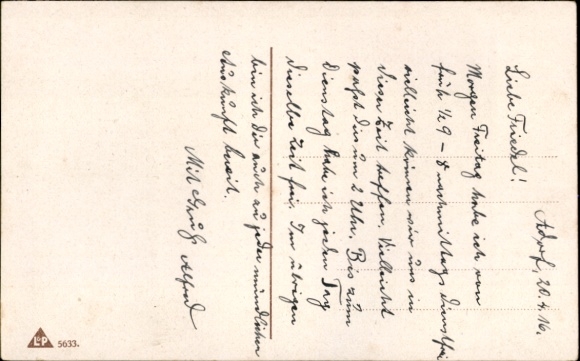 Adorf, 20.4.16.
Liebe Friedel!
Morgen Freitag habe ich von
früh ½ 9 - 4 nachmittags dienstfrei
vielleicht können wir uns in
dieser Zeit treffen. Vielleicht
paßt Dir um 2 Uhr. Bis zum
Dienstag habe ich jeden Tag
dieselbe Zeit frei. Im übrigen
bin ich Dir auch zu jeder mündlichen
Auskunft bereit.
Mit Gruß Alfred
L&P 5633.